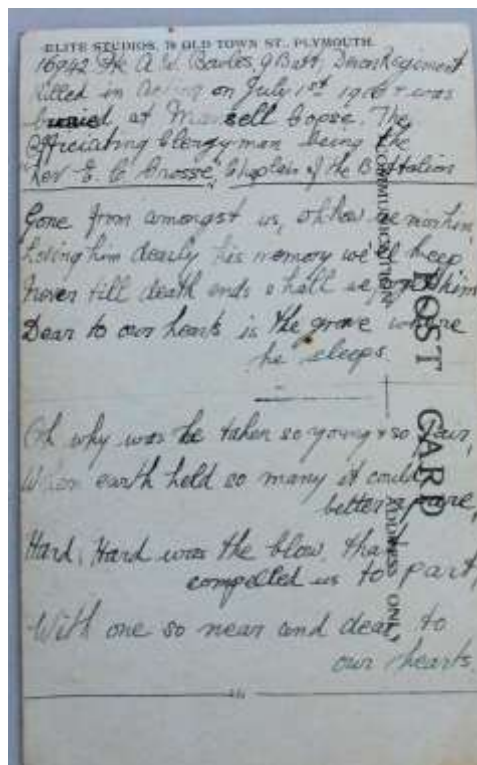 ELITE STUDIOS, 78 OLD TOWN ST., PLYMOUTH.
16942 Pte A. W. Bowles 9 Batt, Devon Regiment
Killed in Action on July 1st 1916 & was
buried at Mansell Copse. The
Officiating Clergyman being the
Rev E. C Crosse, Chaplain of the Battalion
Gone from amongst us, oh how we miss him,
Loving him dearly his memory we'll keep
Never till death ends shall we forget him
Dear to our hearts is the grave where
he sleeps.
Oh why was he taken so young & so fair,
When earth held so many it could
better spare,
Hard, Hard was the blow that
compelled us to part,
With one so near and dear to
our hearts.
POST CARD
COMMUNICATION
ADDRESS ONLY